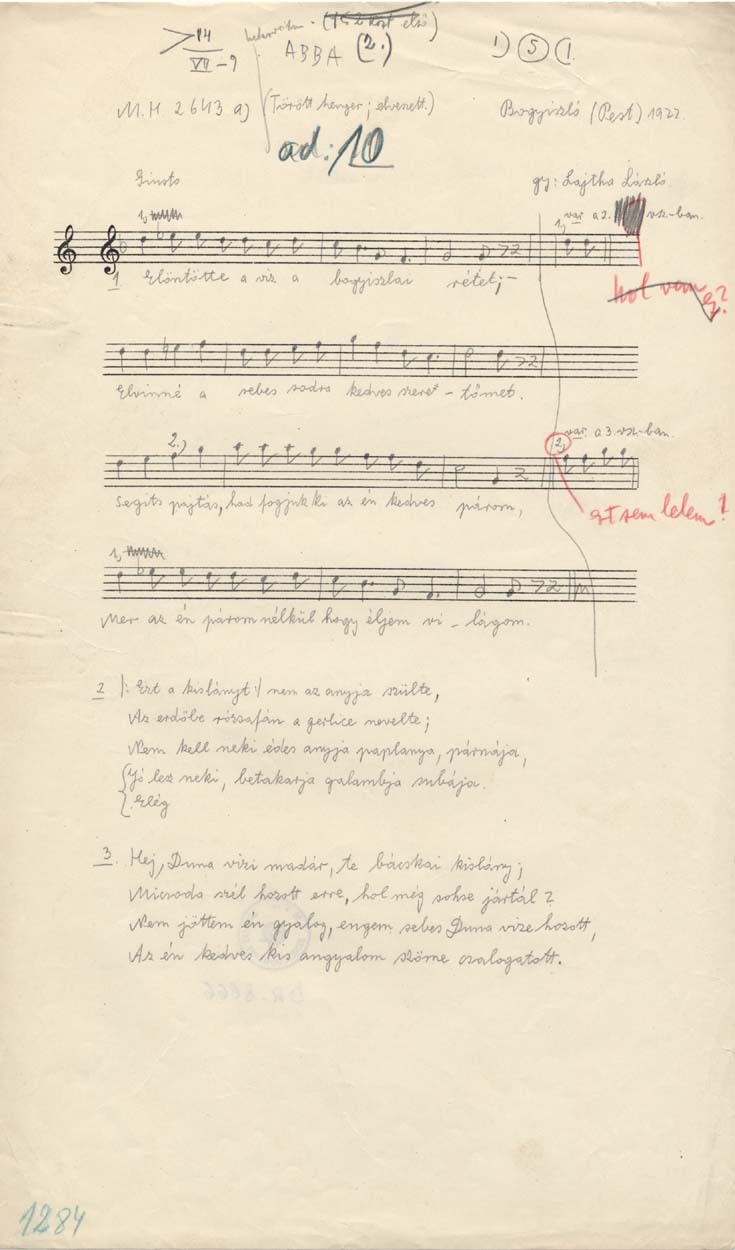 14
VII - 9
ABBA (2.)
1) 5 (1.
M.H 2643 a) (Törött henger; elveszett.)
Bogyiszló (Pest) 1922.
ad: 10
Giusto
gy: Lajtha László.
1,
1, var. a 2. vsz-ban.
1 Elöntötte a viz a bogyiszlai rétet; –
hol van ez?
Elvinné a sebes sodra kedves szeret – tőmet.
2.)
2, var. a 3. vsz-ban.
Segits pajtás, had fogjuk ki az én kedves párom,
ezt sem lelem!
1,
Mer az én párom nélkül hogy éljem vi – lágom.
2 |: Ezt a kislányt :| nem az anyja szülte,
Az erdőbe rózsafán a gerlice nevelte;
Nem kell neki édes anyja paplanya, párnája,
{Jó lesz neki, betakarja galambja subája.
{Elég
3. Hej, Duna vizi madár, te bácskai kislány;
Micsoda szél hozott erre, hol még sohse jártál?
Nem jöttem én gyalog, engem sebes Duna vize hozott,
Az én kedves kis angyalom szöme csalogatott.
1284